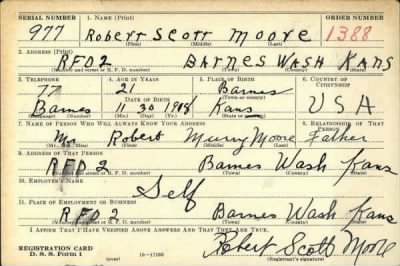 SERIAL NUMBER 1. NAME (Print) ORDER NUMBER
977 Robert Scott Moore 1388
(First) (Middle) (Last)
2. ADDRESS (Print)
RFD2 BARNES WASH KANS
(Number and street or R. F. D. number) (Town) (County) (State)
3. TELEPHONE 4. AGE IN YEARS 5. PLACE OF BIRTH 6. COUNTRY OF CITIZENSHIP
77 21 Barnes
DATE OF BIRTH (Town or county)
Barnes 11 30 1918 Kans USA
(Exchange) (Number) (Mo.) (Day) (Yr.) (State or country)
7. NAME OF PERSON WHO WILL ALWAYS KNOW YOUR ADDRESS 8. RELATIONSHIP OF THAT PERSON
Mr Robert Murry Moore Father
(Mr., Mrs., Miss) (First) (Middle) (Last)
9. ADDRESS OF THAT PERSON
RFD2 Barnes Wash Kans
(Number and street or R. F. D. number) (Town) (County) (State)
10. EMPLOYER'S NAME
Self
11. PLACE OF EMPLOYMENT OR BUSINESS
RFD2 Barnes Wash Kans
(Number and street or R. F. D. number) (Town) (County) (State)
I AFFIRM THAT I HAVE VERIFIED ABOVE ANSWERS AND THAT THEY ARE TRUE.
Robert Scott Moore
REGISTRATION CARD
D. S. S. Form 1 (over) (Registrant's signature)